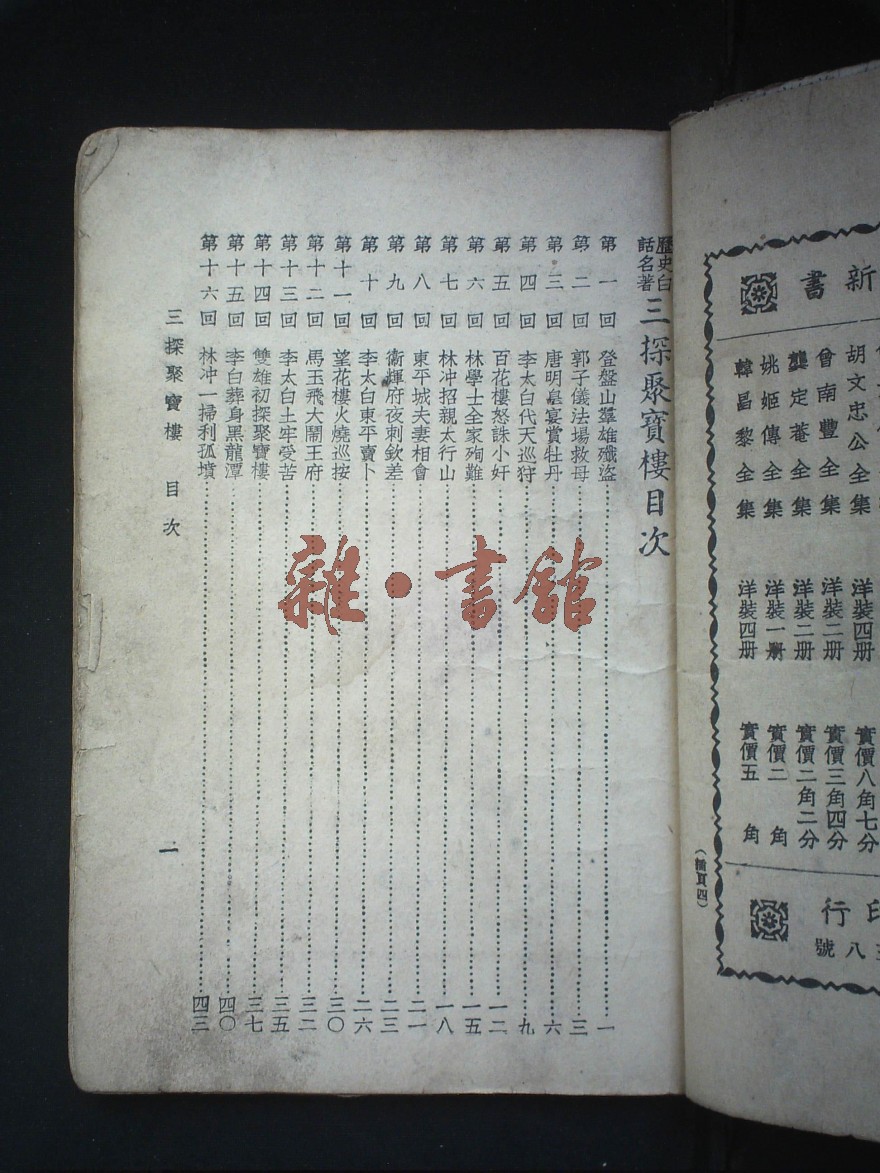 歷史白話名著 三探聚寶樓目次
第一回 登盤山羣雄殲盜 一
第二回 郭子儀法場救母 三
第三回 唐明皇宴賞牡丹 六
第四回 李太白代天巡狩 九
第五回 百花樓怒誅小奸 一二
第六回 林學士全家殉難 一五
第七回 林冲招親太行山 一八
第八回 東平城夫妻相會 二一
第九回 衞輝府夜刺欽差 二三
第十回 李太白東平賣卜 二六
第十一回 望花樓火燒巡按 三〇
第十二回 馬玉飛大鬧王府 三二
第十三回 李太白土牢受苦 三五
第十四回 雙雄初探聚寶樓 三七
第十五回 李白葬身黑龍潭 四〇
第十六回 林冲一掃利孤墳 四三
三探聚寶樓 目次 一
雜·書館
新書
胡文忠公全集 洋裝四册 實價八角七分
曾南豐全集 洋裝二册 實價三角四分
龔定菴全集 洋裝二册 實價二角二分
姚姬傳全集 洋裝一册 實價二角
韓昌黎全集 洋裝四册 實價五角
印行
八號
(插頁四)